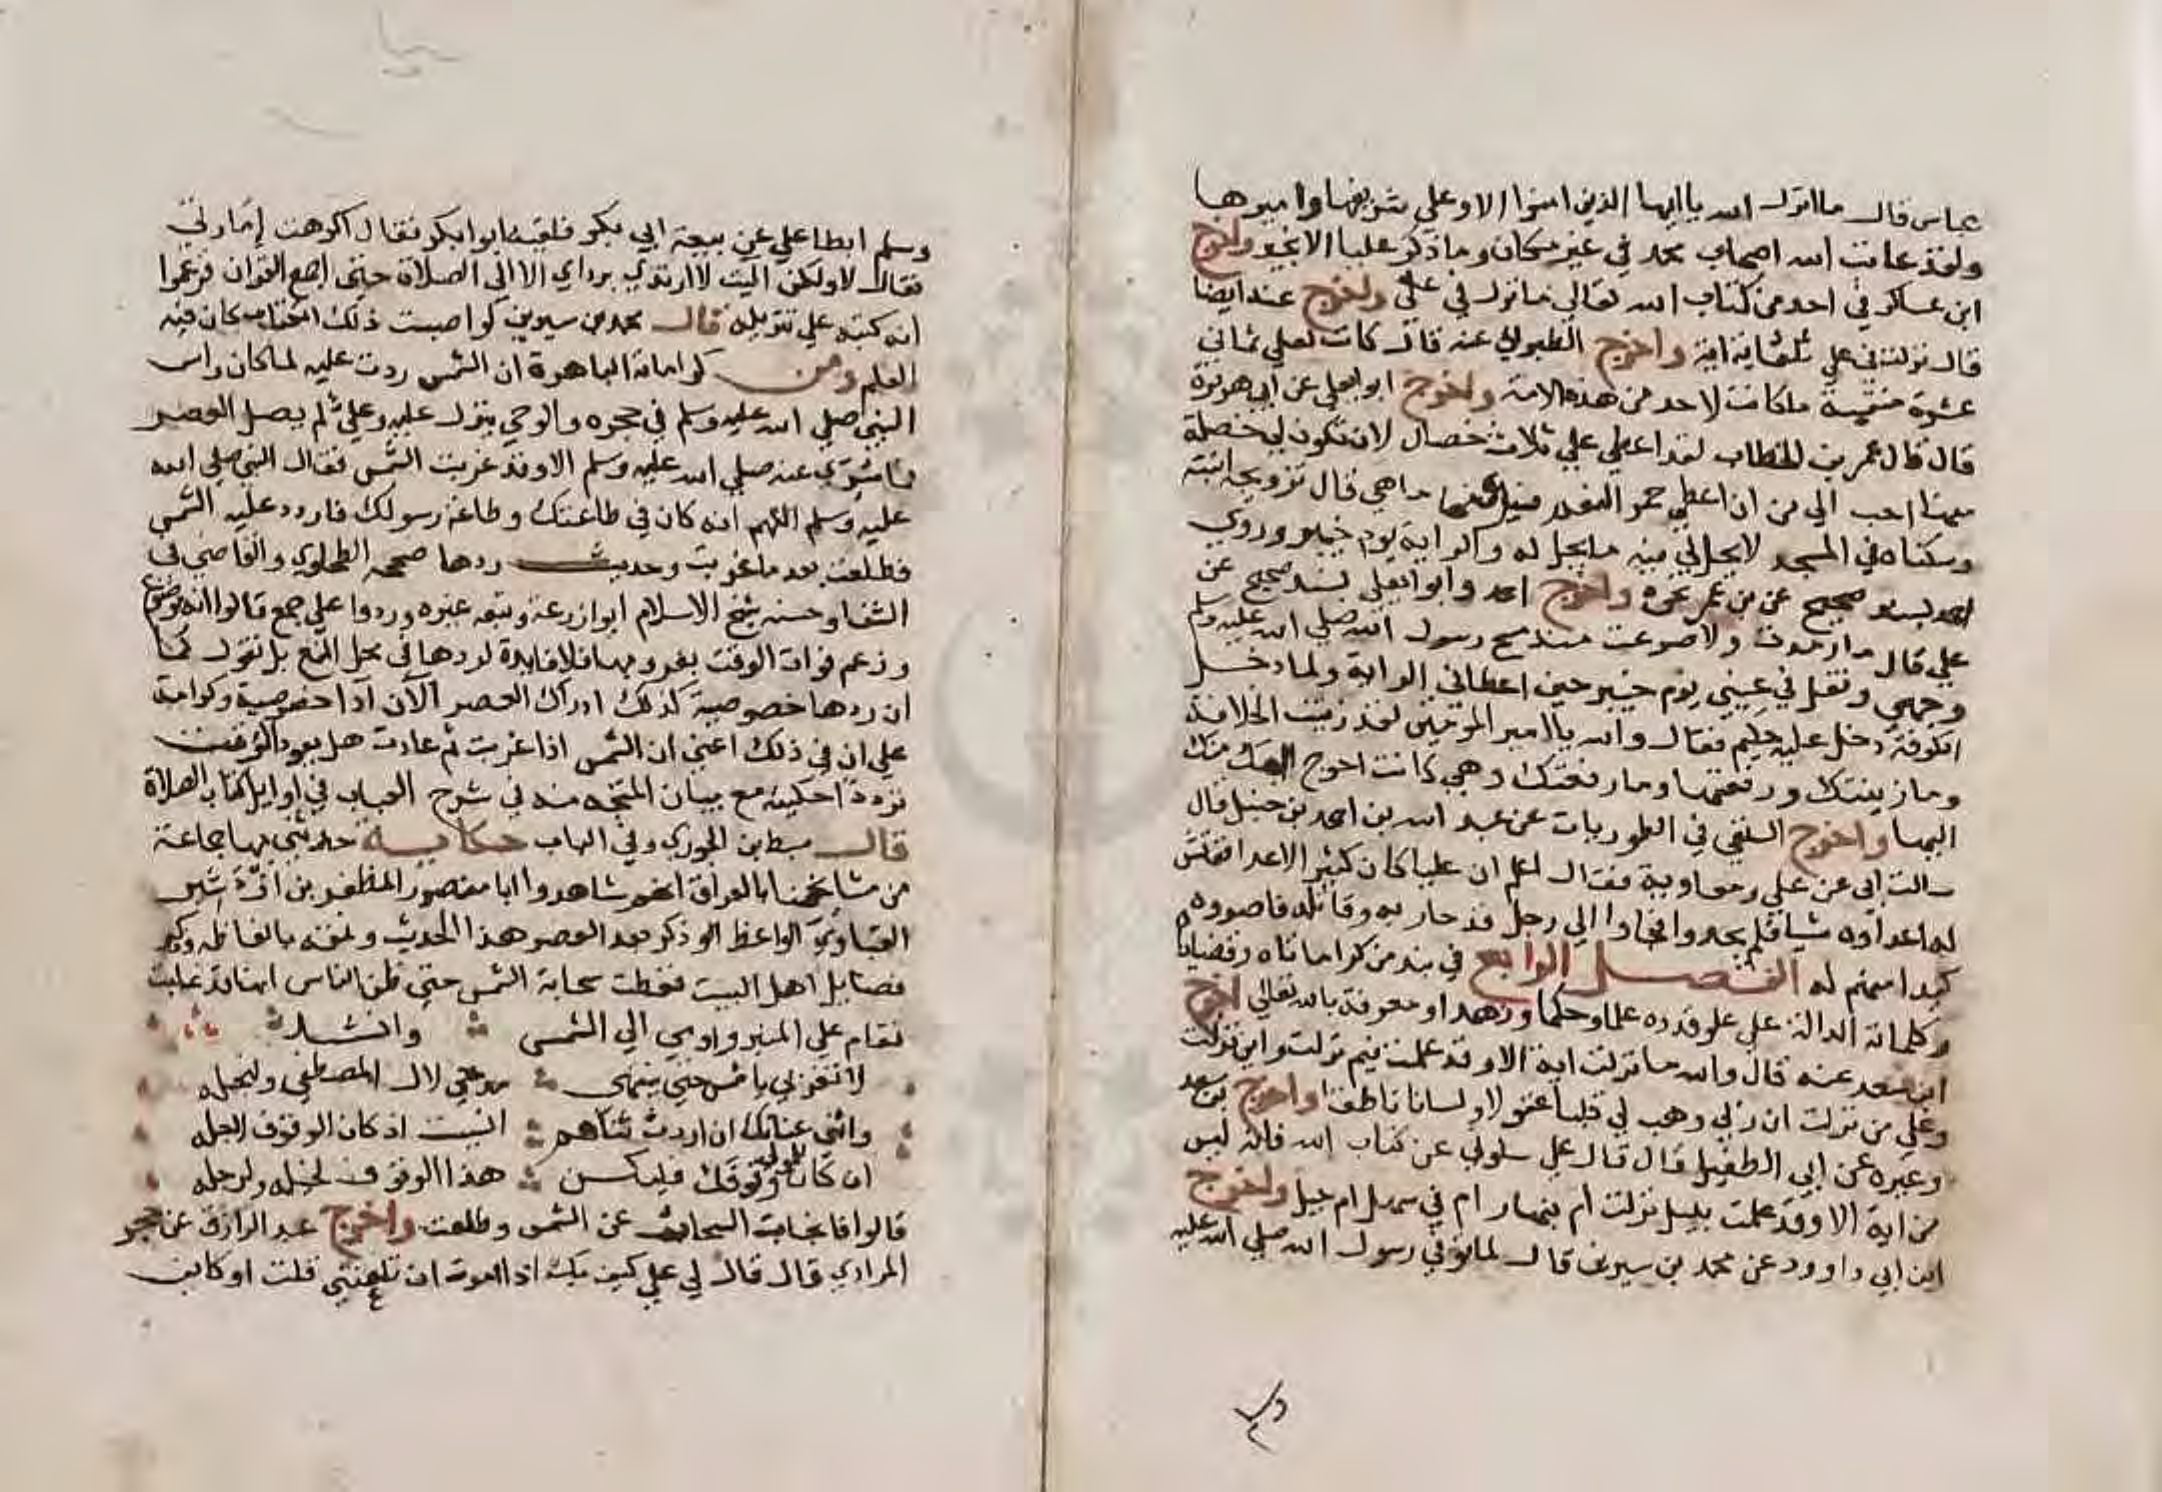 عباس قال ما انزل الله يا ايها الذين امنوا الا وعلي شريفها واميرها
ولقد عاتب الله اصحاب محمد في غير مكان وما ذكر عليا الا بخير واخرج
ابن عساكر في احد من كتاب الله تعالي ما نزل في علي واخرج عند ايضا
قال نزلت في علي ثلثماية اية واخرج الطبراني عنه قال كانت لعلي ثماني
عشرة منقبة ما كانت لاحد من هذه الامة واخرج ابو يعلي عن ابي هريرة
قال قال عمر بن الخطاب لقد اعطي علي ثلاث خصال لان تكون لي خصلة
منها احب الي من ان اعطي حمر النعم ما هي قال تزويجه ابنته
وسكناه في المسجد لا يحل لي فيه ما يحل له والراية يوم خيبر وروي
احمد بسند صحيح عن بن عمر نحوه واخرج احمد وابو يعلى بسند صحيح عن
علي قال ما رمدت ولا صرعت منذ مسح رسول الله صلي الله عليه وسلم
وجهي وتفل في عيني يوم خيبر حين اعطاني الراية ولما دخل
الكوفة دخل عليه حكيم فقال والله يا امير المومنين لقد زينت الخلافة
وما زينتك ورفعتها وما رفعتك وهي كانت احوج اليك منك
اليها واخرج السلفي في الطوريات عن عبد الله بن احمد بن حنبل قال
سالت ابي عن علي ومعاوية فقال اعلم ان عليا كان كثير الاعدا ففتش
له اعداوه شيا فلم يجدوا فجاوا الي رجل قد حاربه وقاتله فاصروه
كيدا منهم له الفصل الرابع في نبذ من كراماته وقضاياه
وكلماته الدالة علي علو قدره علما وحكما وزهدا ومعرفة بالله تعالي اخرج
ابن سعد عنه قال والله ما نزلت اية الا وقد علمت فيم نزلت واين نزلت
وعلي من نزلت ان ربي وهب لي قلبا عقولا ولسانا ناطقا واخرج بن سعد
وغيره عن ابي الطفيل قال قال علي سلوني عن كتاب الله فانه ليس
من اية الا وقد علمت بليل نزلت ام بنهار ام في سهل ام جبل واخرج
ابن ابي داوود عن محمد بن سيرين قال لما توفي رسول الله صلي الله عليه
وسلم ابطا علي عن بيعة ابي بكر فلقيه ابوا بكر فقال اكرهت إمارتي
فقال لا ولكن اليت لا ارتدي برداي الا الي الصلاة حتي اجمع القران فزعموا
انه كتبه علي تنزيله قال محمد بن سيرين لو اصبت ذلك الكتاب كان فيه
العلم ومن كراماته الباهرة ان الشمس ردت عليه لما كان راس
النبي صلي الله عليه وسلم في حجره والوحي ينزل عليه وعلي لم يصل العصر
فما سُرّي عنه صلي الله عليه وسلم الا وقد غربت الشمس فقال النبي صلي الله
عليه وسلم اللهم انه كان في طاعتك وطاعة رسولك فاردد عليه الشمس
فطلعت بعد ما غربت وحديث ردها صححه الطحاوي والقاضي في
الشفا وحسنه شيخ الاسلام ابوا زرعة وتبعه غيره وردوا علي جمع قالوا انه موضوع
وزعم فوات الوقت بغروبها فلا فايدة لردها في محل المنع بل نقول كما
ان ردها خصوصية كذلك ادراك العصر الآن اداً خصوصية وكرامة
علي ان في ذلك اعني ان الشمس اذا غربت ثم عادت هل يعود الوقت
ترددا حكيته مع بيان المتجه منه في شرح العباب في اوايل كتاب الصلاة
قال سبط بن الجوزي وفي الباب حكاية حدثني بها جماعة
من مشايخنا بالعراق انهم شاهدوا ابا منصور المظفر بن ازدشير
القباوي الواعظ الو ذكر بعد العصر هذا الحديث ونمقه بالفاظه وذكر
فضايل اهل البيت فغطت سحابة الشمس حتي ظن الناس انها قد غابت
فقام علي المنبر واومي الي الشمس وانشد
لا تغربي يا شمس حتي ينتهى مدحي لال المصطفي ولنجله
واثني عنانك ان اردت ثناهم انسيت اذ كان الوقوف لاجله
ان كان للمولي وقوفك فليكن هذا الوقوف لخيله ولرجله
قالوا فانجاب السحاب عن الشمس وطلعت واخرج عبد الرازق عن حجر
المرادي قال قال لي علي كيف بك اذا امرت ان تلعنني قلت او كاين